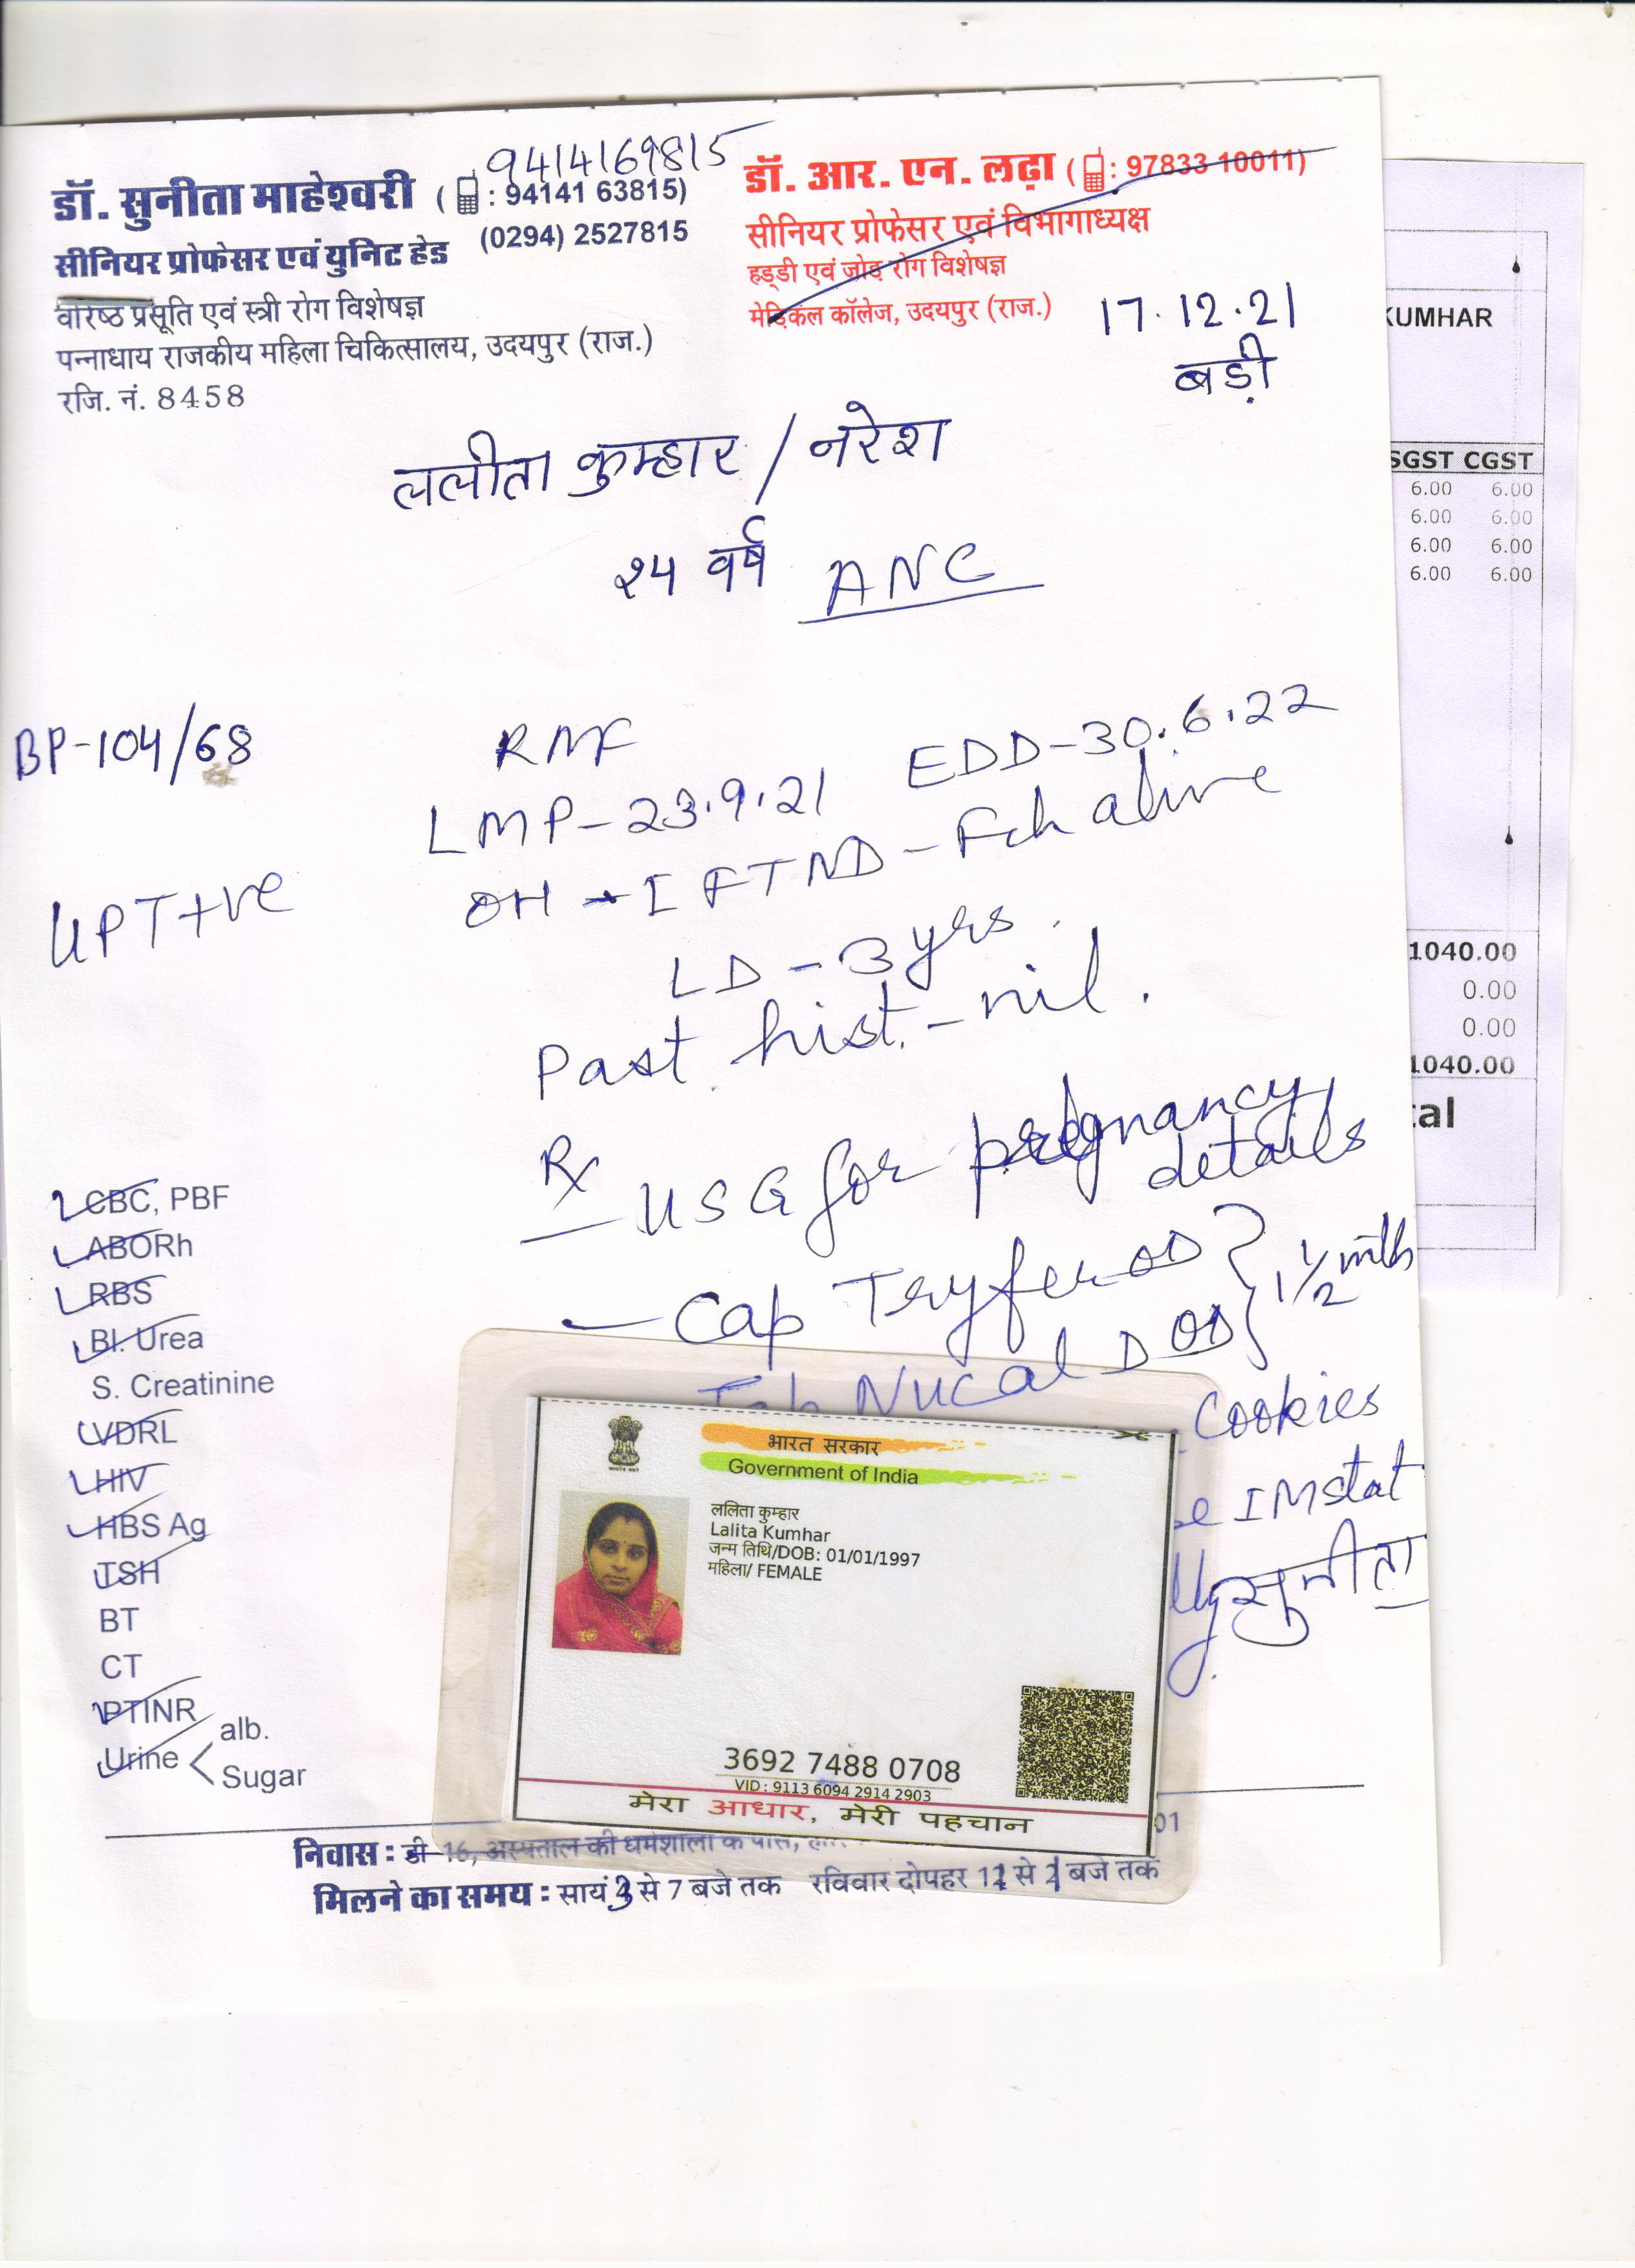 9414169815
डॉ. सुनीता माहेश्वरी ( : 94141 63815)
(0294) 2527815
सीनियर प्रोफेसर एवं युनिट हेड
वरिष्ठ प्रसूति एवं स्त्री रोग विशेषज्ञ
पन्नाधाय राजकीय महिला चिकित्सालय, उदयपुर (राज.)
रजि. नं. 8458
डॉ. आर. एन. लढ़ा ( : 97833 10011)
सीनियर प्रोफेसर एवं विभागाध्यक्ष
हड्डी एवं जोड़ रोग विशेषज्ञ
मेडिकल कॉलेज, उदयपुर (राज.)
17.12.21
बड़ी
ललीता कुम्हार / नरेश
२५ वर्ष ANC
BP-104/68
UPT+ve
RMF
LMP-23.9.21 EDD-30.6.22
OH - I FTND - Fch alive
LD - 3 yrs.
Past hist. - nil.
Rx
- USG for pregnancy
details
- Cap Tryfer OD } 1 1/2 mth
Tab Nucal D OD
Cookies
IM stat
सुनीता
CBC, PBF
ABORh
RBS
Bl. Urea
S. Creatinine
VDRL
HIV
HBS Ag
TSH
BT
CT
PTINR
Urine < alb.
Sugar
भारत सरकार
Government of India
ललिता कुम्हार
Lalita Kumhar
जन्म तिथि/DOB: 01/01/1997
महिला/ FEMALE
3692 7488 0708
VID : 9113 6094 2914 2903
मेरा आधार, मेरी पहचान
निवास : डी 16, अस्पताल की धर्मशाला के पास,
01
मिलने का समय : सायं 3 से 7 बजे तक रविवार दोपहर 12 से 1 बजे तक
KUMHAR
SGST CGST
6.00 6.00
6.00 6.00
6.00 6.00
6.00 6.00
1040.00
0.00
0.00
1040.00
tal